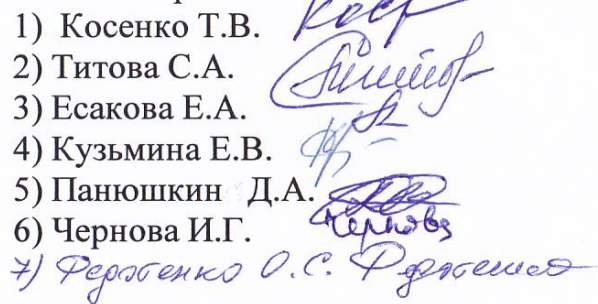 1) Косенко Т.В.
2) Титова С.А.
3) Есакова Е.А.
4) Кузьмина Е.В.
5) Панюшкин Д.А.
6) Чернова И.Г. Чернова
7) О.С.